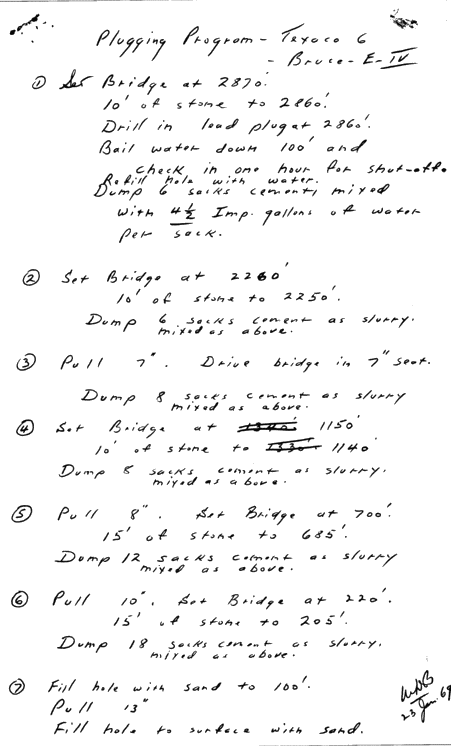 Plugging Program - Texaco 6
- Bruce - E - IV
① Set Bridge at 2870'.
10' of stone to 2860'.
Drill in lead plug at 2860'.
Bail water down 100' and
check in one hour for shut-off.
Refill hole with water.
Dump 6 sacks cement, mixed
with 4½ Imp. gallons of water
per sack.
② Set Bridge at 2260'
10' of stone to 2250'.
Dump 6 sacks cement as slurry.
mixed as above.
③ Pull 7". Drive bridge in 7" seat.
Dump 8 sacks cement as slurry
mixed as above.
④ Set Bridge at 1340' 1150'
10' of stone to 1330' 1140'
Dump 8 sacks cement as slurry.
mixed as above.
⑤ Pull 8". Set Bridge at 700'.
15' of stone to 685'.
Dump 12 sacks cement as slurry
mixed as above.
⑥ Pull 10". Set Bridge at 220'.
15' of stone to 205'.
Dump 18 sacks cement as slurry.
mixed as above.
⑦ Fill hole with sand to 100'.
Pull 13"
Fill hole to surface with sand.
23 Jan. 69